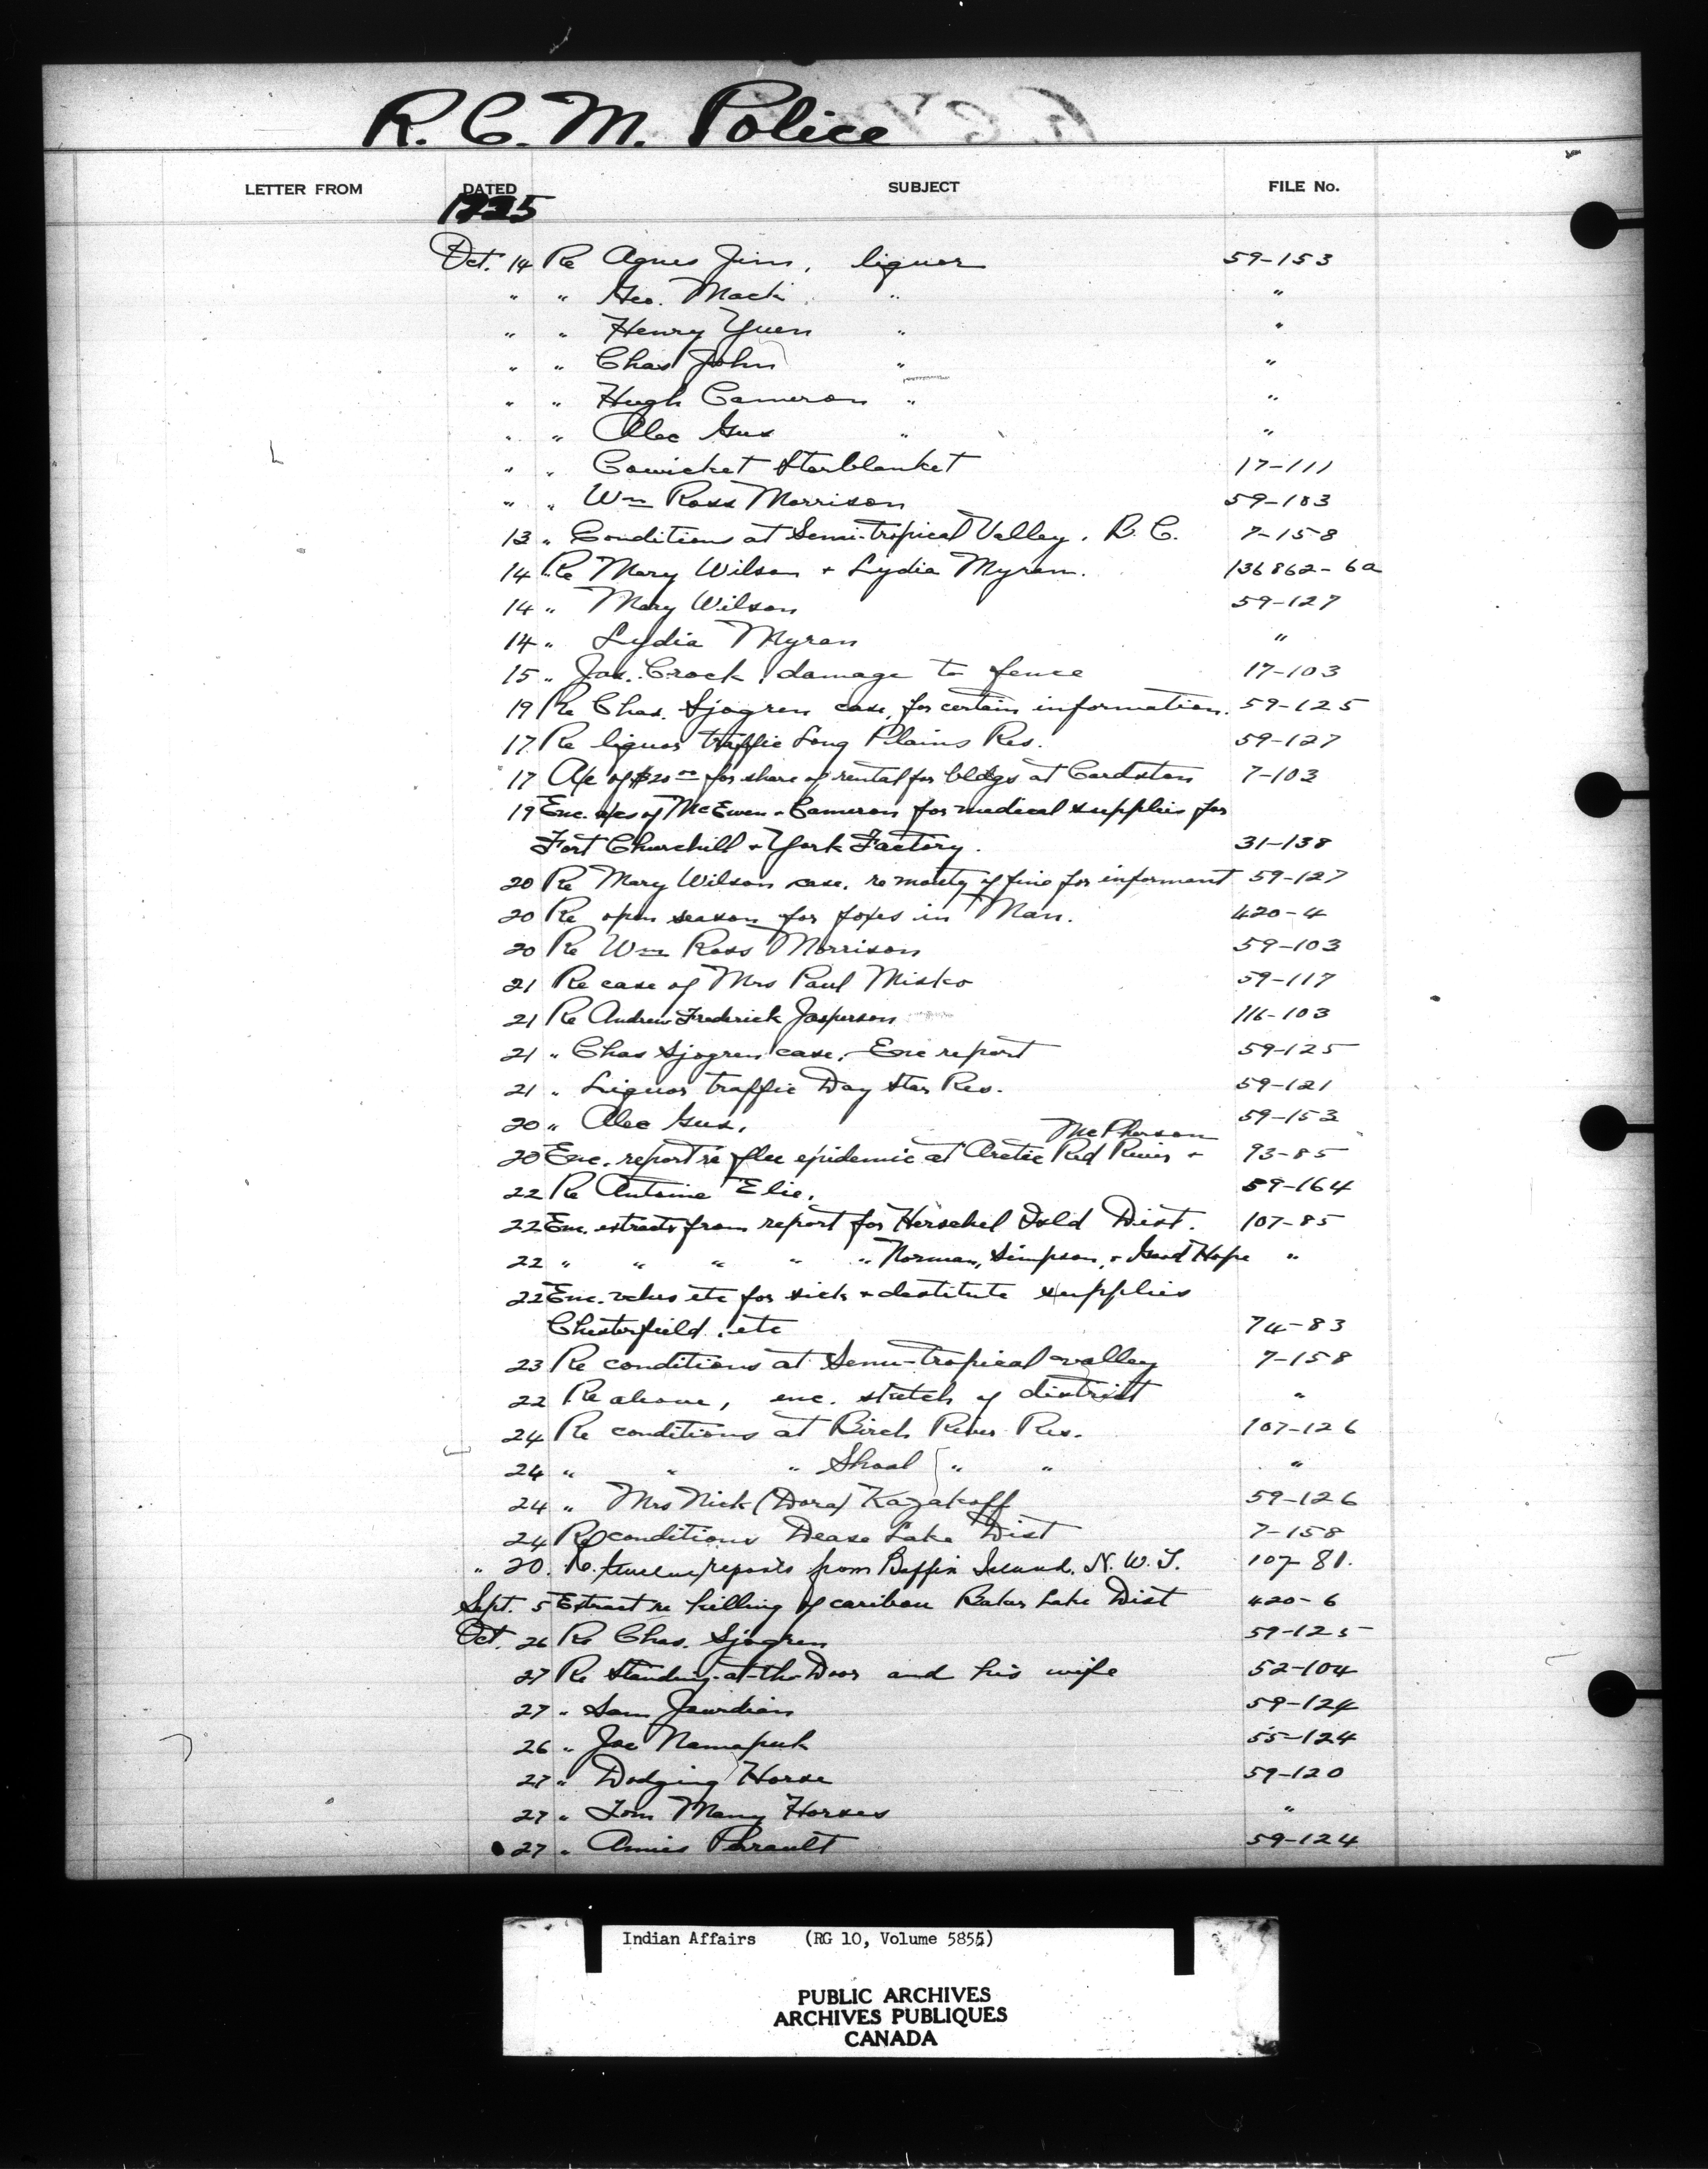 R. C. M. Police
LETTER FROM DATED SUBJECT FILE No.
1925
Oct. 14 Re Agnes Jim, liquor 59-153
" " Geo. Mack " "
" " Henry Yuen " "
" " Chas John " "
" " Hugh Cameron " "
" " Alec Gus " "
" " Cowicket Starblanket 17-111
" " Wm Ross Morrison 59-103
13 " Conditions at Semi-tropical Valley, B.C. 7-158
14 Re Mary Wilson + Lydia Myran. 136862-6a
14 " Mary Wilson 59-127
14 " Lydia Myran "
15 " Jas. Crock damage to fence 17-103
19 Re Chas. Sjogren case, for certain information. 59-125
17 Re liquor traffic Long Plains Res. 59-127
17 A/c of $20.00 for share of rental for bldgs at Cardston 7-103
19 Enc. a/cs of McEwen + Cameron for medical supplies for
Fort Churchill + York Factory. 31-138
20 Re Mary Wilson case, re moiety of fine for informant 59-127
20 Re open season for foxes in Man. 420-4
20 Re Wm Ross Morrison 59-103
21 Re case of Mrs Paul Misko 59-117
21 Re Andrew Frederick Jasperson 116-103
21 " Chas Sjogren case, Enc report 59-125
21 " Liquor traffic Day Star Res. 59-121
20 " Alec Gus, 59-153
McPherson
20 Enc. report re flu epidemic at Arctic Red River + 93-85
22 Re Antoine Elie, 59-164
22 Enc. extracts from report for Herschel Isld Dist. 107-85
22 " " " " " Norman, Simpson, + Good Hope "
22 Enc. vchrs etc for sick + destitute supplies
Chesterfield, etc 74-83
23 Re conditions at Semi-tropical valley 7-158
22 Re above, enc. sketch of district "
24 Re conditions at Birch River Res. 107-126
24 " " " Shoal " " "
24 " Mrs Nick (Dora) Kazakoff 59-126
24 Re conditions Dease Lake Dist 7-158
" 20. Re. reports from Baffin Island, N.W.T. 107-81.
Sept. 5 Extract re killing of caribou Baker Lake Dist 420-6
Oct. 26 Re Chas. Sjogren 59-125
27 Re Standing-at-the-Door and his wife 52-104
27 " Sam Jourdian 59-124
26 " Joe Namapuk 55-124
27 " Dodging Horse 59-120
27 " Tom Many Horses "
27 " Perrault 59-124
Indian Affairs (RG 10, Volume 5855)
PUBLIC ARCHIVES
ARCHIVES PUBLIQUES
CANADA